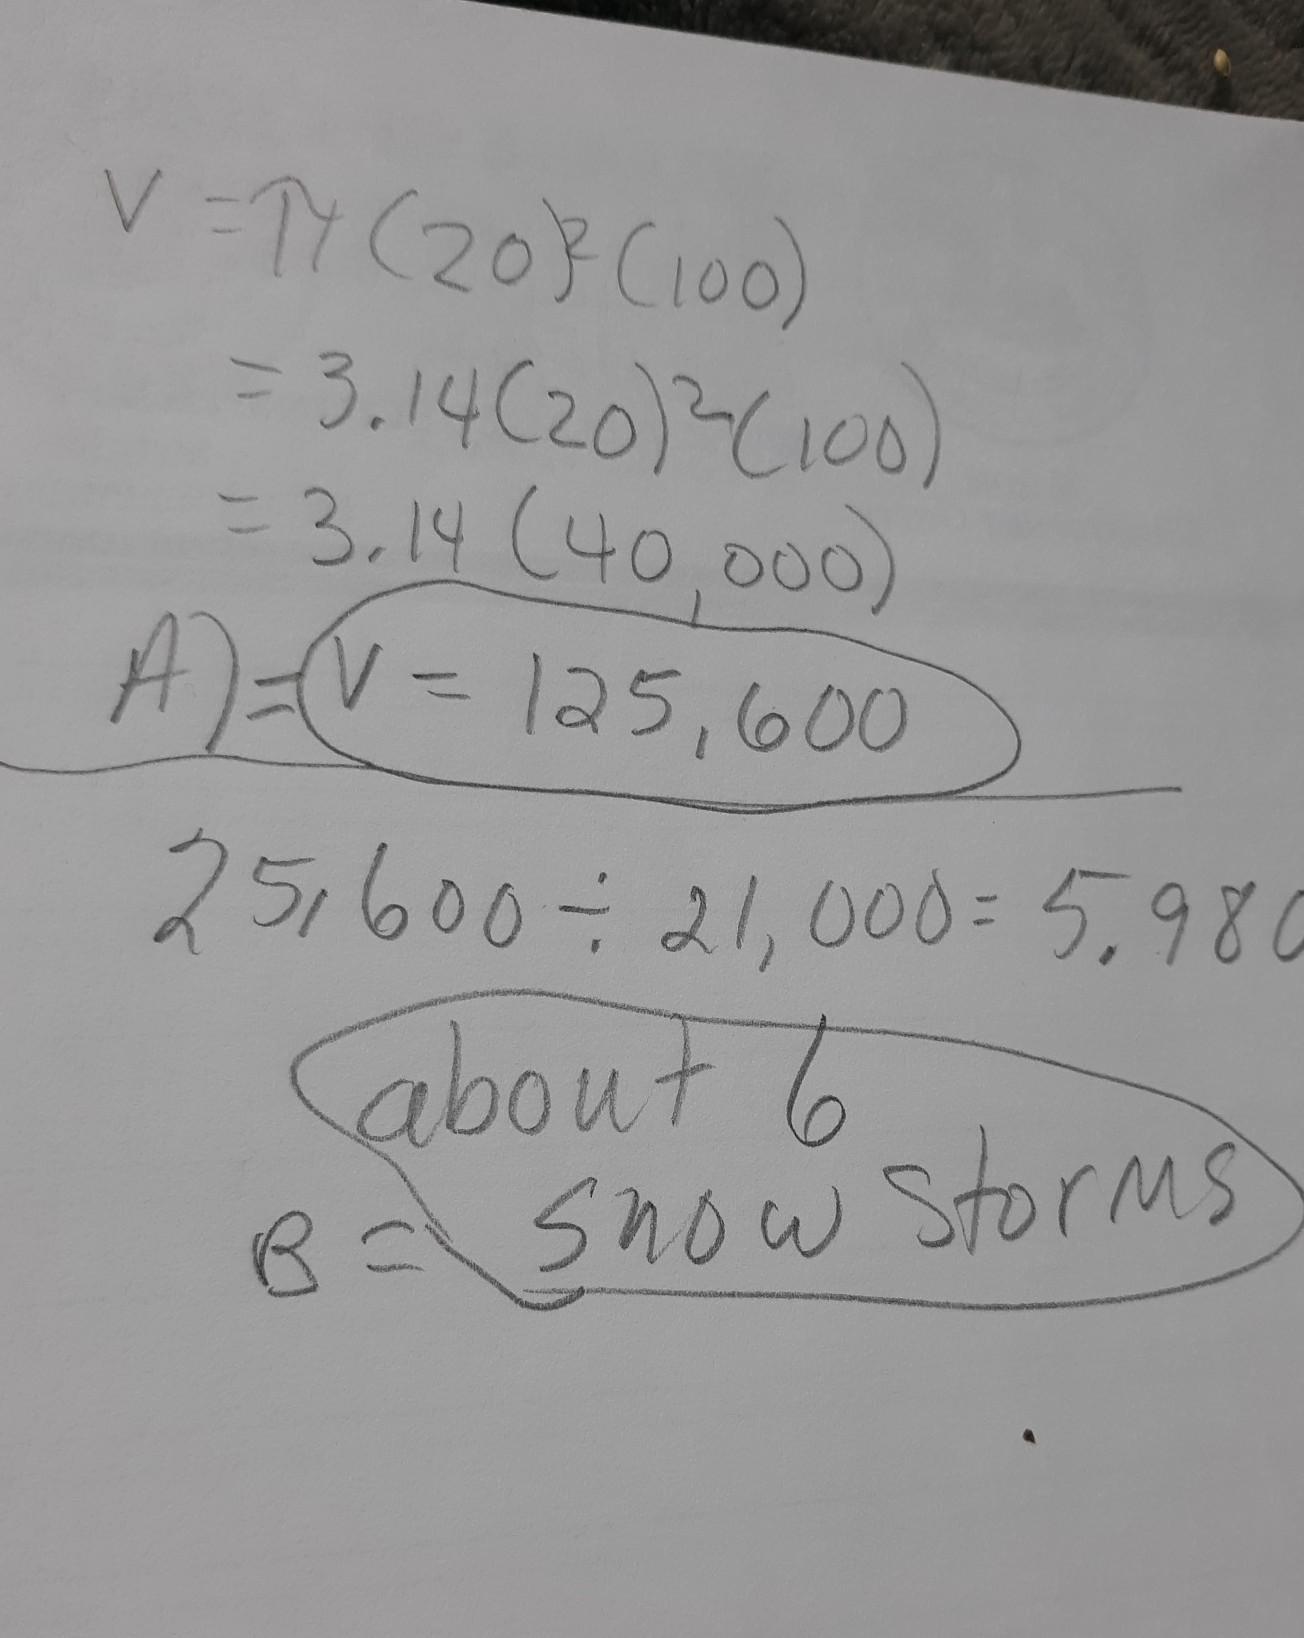 V = π(20)²(100)
= 3.14(20)²(100)
= 3.14 (40,000)
A) = V = 125,600
25,600 ÷ 21,000 = 5.980
about 6
snow storms
B =